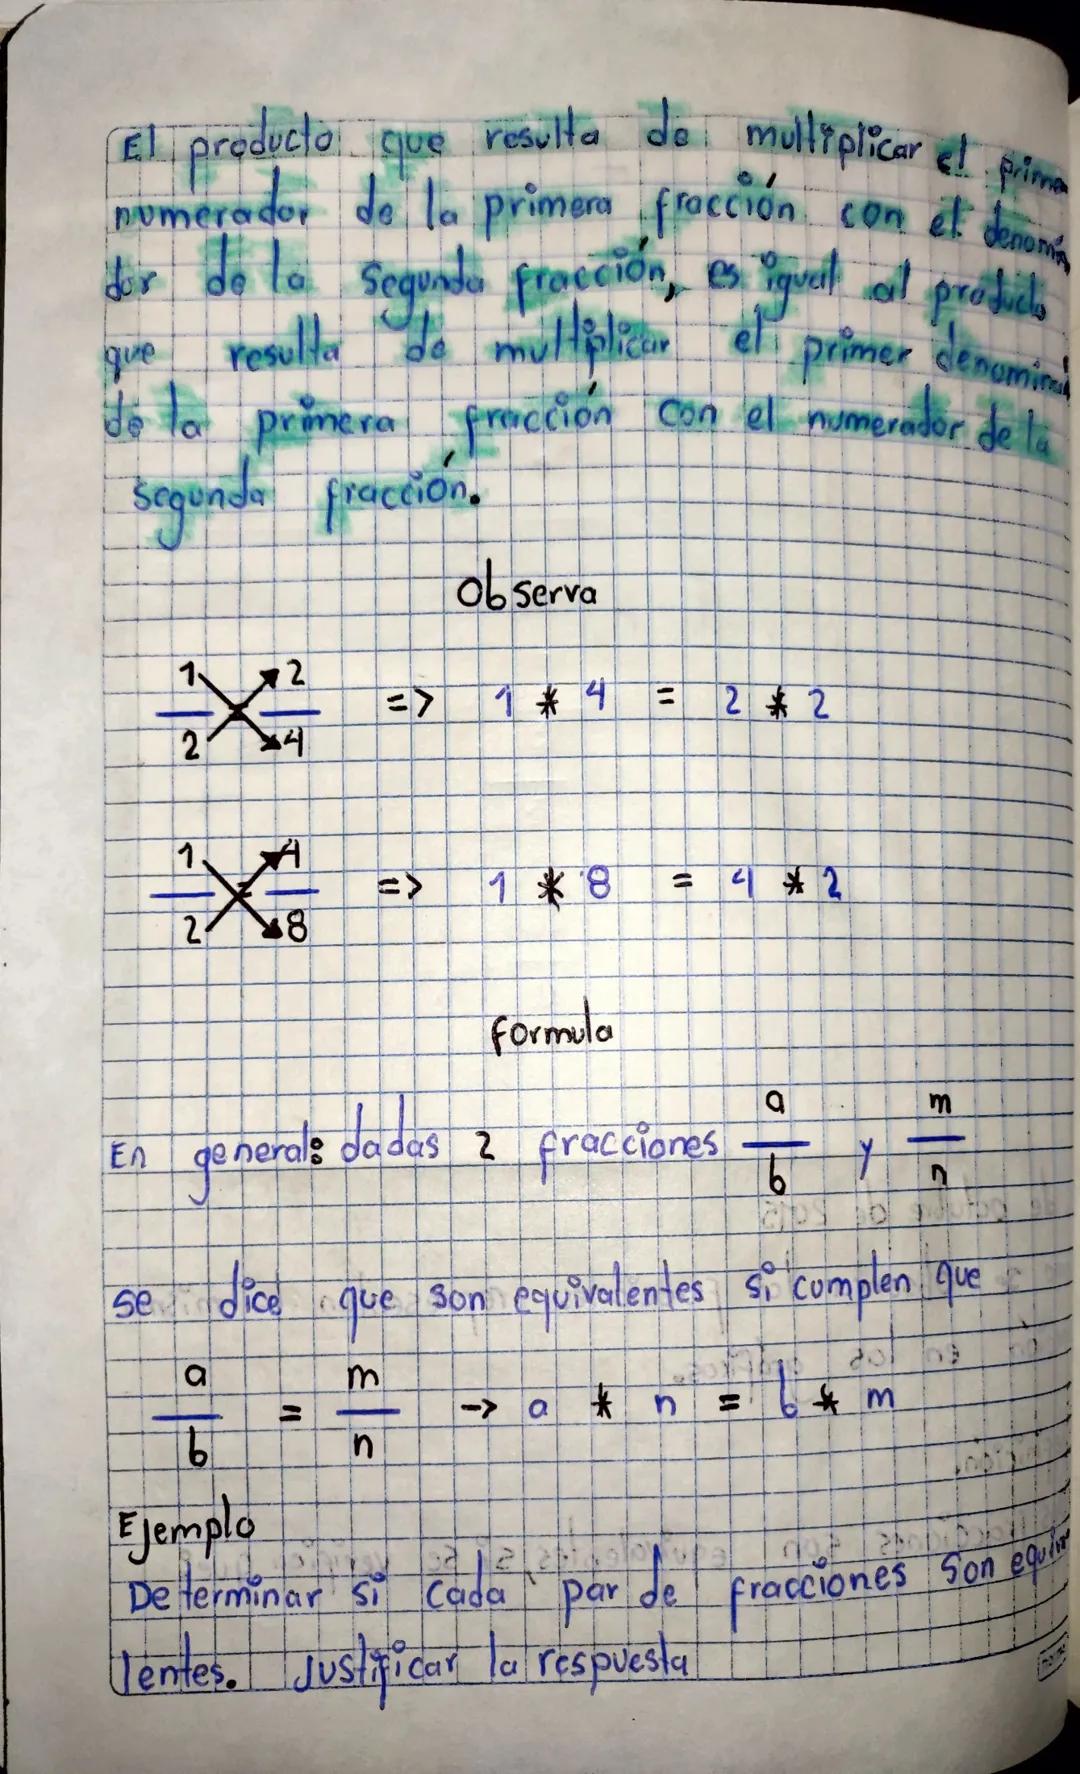 El producto que resulta de multiplicar el primer
numerador de la primera fracción con el denomina
dor de la segunda fracción, es igual al producto
que resulta de multiplicar el primer denominad
de la primera fracción con el numerador de la
segunda fracción.
Observa
1 2
2 4 => 1 * 4 = 2 * 2
1 4
2 8 => 1 * 8 = 4 * 2
formula
En general: dadas 2 fracciones a/b y m/n
se dice que son equivalentes si cumplen que
a/b = m/n -> a * n = b * m
Ejemplo
Determinar si cada par de fracciones son equiva
lentes. Justificar la respuesta